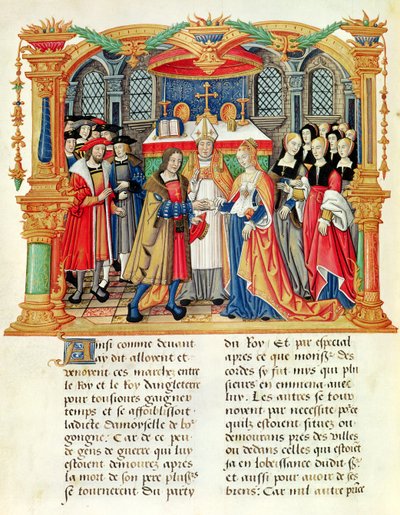 Ainsi comme devant
ay dit alloyent et
venoyent ces marchez entre
le Roy et le Roy dangleterre
pour tousiours gaigner
temps et se affoiblissoit
ladicte damoyselle de bo͛
gongne: Car de ce peu
de gens de guerre qui luy
estoient demourez apres
la mort de son pere plus͛s
se tournerent du party
du Roy: Et par especial
apres ce que mons͛ des
cordes sy fut mys qui plu
sieurs en emmena auec
luy. Les autres se tour
noyent par necessite po͛ce
quilz estoient situez ou
demourans pres des villes
ou dedans celles qui estoiēt
ja en lobeissance dudit s͛
et aussi pour auoir de ses
biens: Car nul autre price